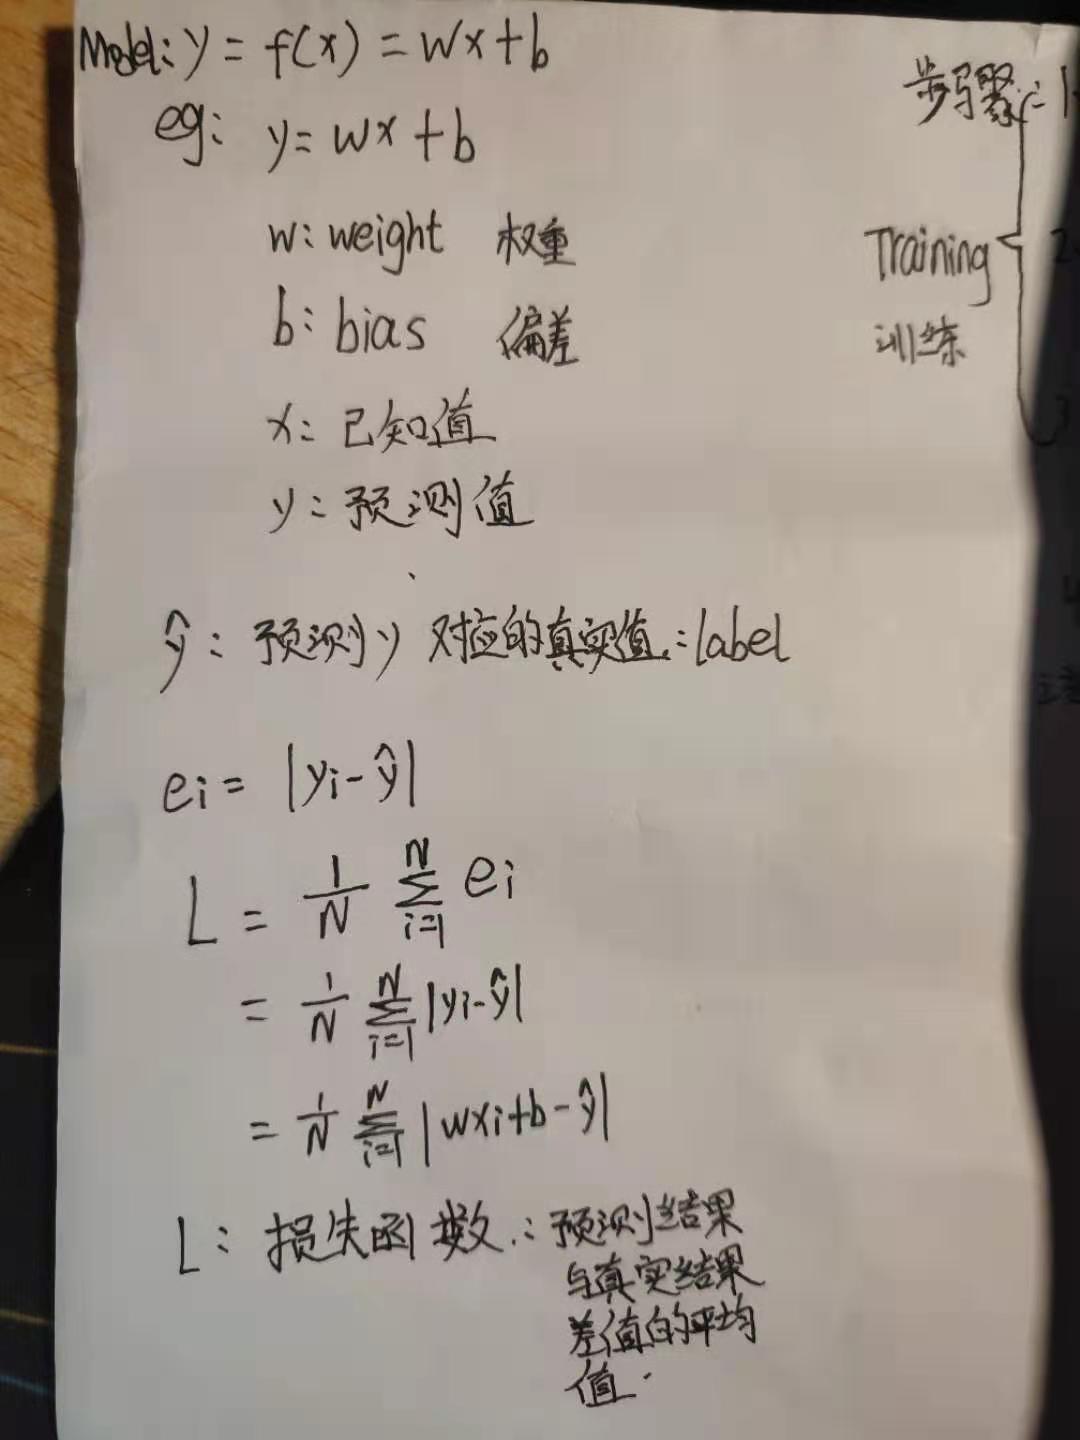 Model: y = f(x) = wx+b
eg: y = wx + b
w: weight 权重
b: bias 偏差
x: 已知值
y: 预测值
ŷ: 预测y对应的真实值: label
ei = |yi-ŷ|
L = 1/N ∑_{i=1}^{N} ei
= 1/N ∑_{i=1}^{N} |yi-ŷ|
= 1/N ∑_{i=1}^{N} |wxi+b-ŷ|
L: 损失函数: 预测结果
与真实结果
差值的平均
值.
步骤: 1
Training
训练
2
3